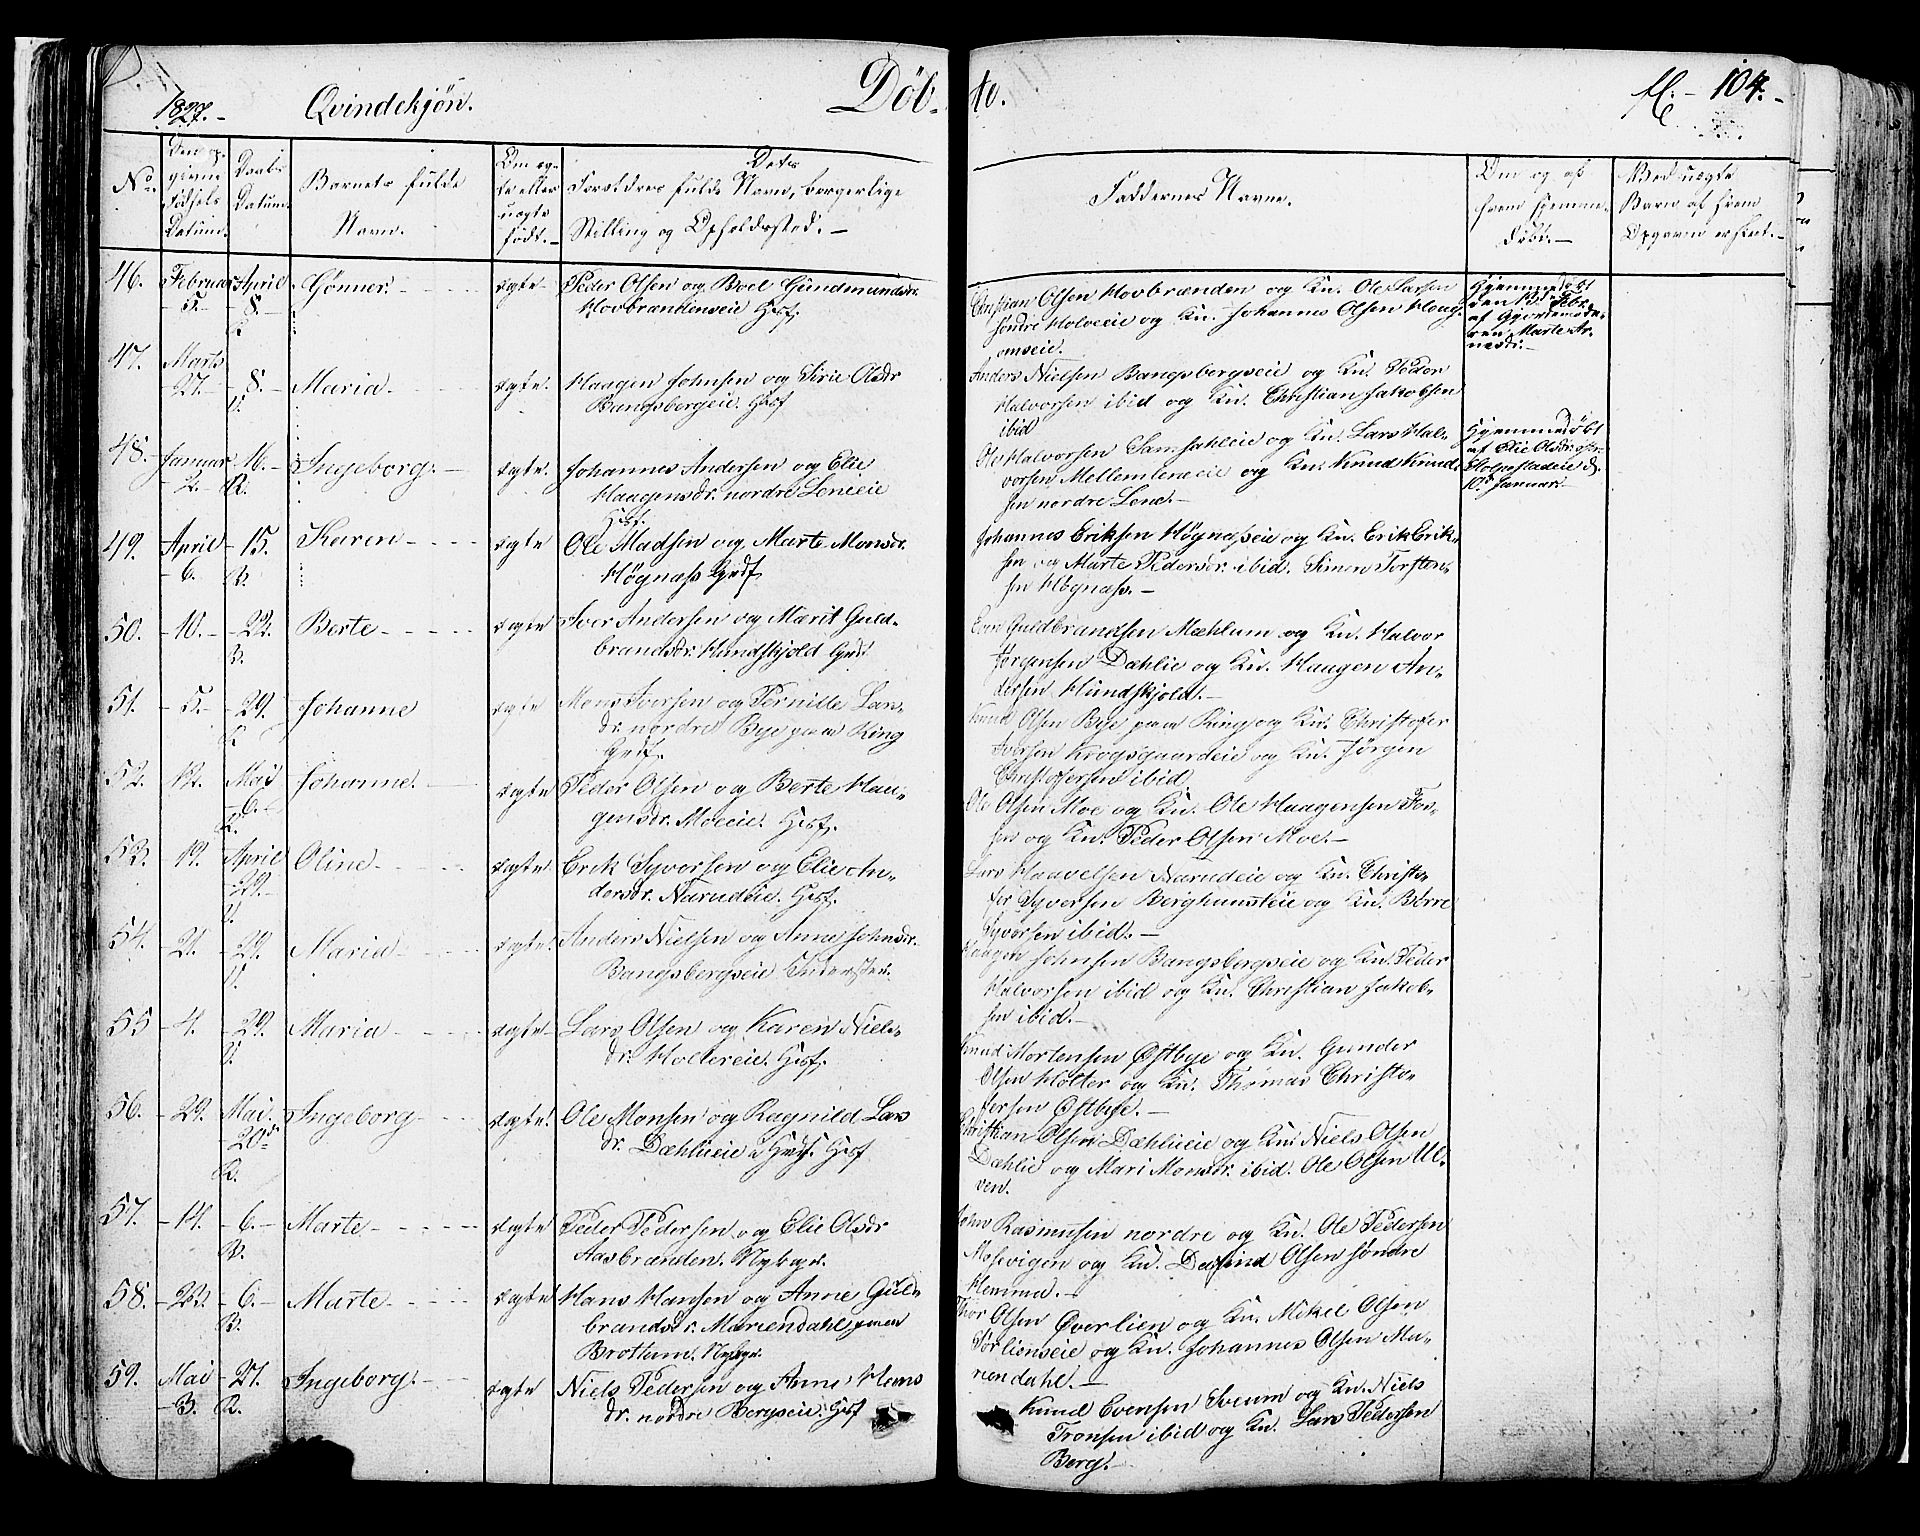 1827.
Qvindekjøn.
Døb-
te.
fl. - 104. -
No
Den op-
givne
Fødsels
Datum.
Daabs
Datum.
Barnets fulde
Navn.
Om æg-
te eller
uægte
født. -
Dets
Forældres fulde Navn, borgerlige
Stilling og Opholdssted. -
Faddernes Navne.
Om og af
hvem hjemme-
døbt. -
Ved uægte
Barn af hvem
Opgaven er skeet. -
46. Februar 5. April 8. R Gønner. ægte Peder Olsen og Boel Gundmundsdr.
Hovbrændenseie Husf.
Christian Olsen Hovbrænden og Kn. Ole Larsen
søndre Holveeie og Kn. Johannes Olsen Haag-
anseie.
Hjemmedøbt
den 13de Febr.
af Gjordemode-
ren Marte Ar-
nesdr. -
47. Marts 27. - 8. V. Maria ægte. Haagen Johnsen og Sirie Olsdr
Bangsbergeie. Husf
Anders Nielsen Bangsbergseie og Kn. Peder
Halvorsen ibid og Kn. Christian Jakobsen
ibid
48. Januar 2. - 16. - R. Ingeborg. ægte. Johannes Andersen og Elie
Haagensdr. nordre Leneeie
Husf.
Ole Halvorsen Samsahleie og Kn. Lars Hal-
vorsen Mellemleraeie og Kn. Knud Knud-
sen nordre Lene. -
Hjemmedøbt
af Elie Olsdr.
Holpestadeie d.
10de Januar. -
49. April 6. - 15. R. Karen ægte Ole Madsen og Marte Monsdr.
Høgnæss Grdf.
Johannes Eriksen Høgnæsseie og Kn. Erik Erik-
sen og Marte Pedersdr. ibid. Simen Torsten-
sen Høgnæss. -
50. - 10. - - 22. R. Berte ægte Iver Andersen og Marit Guld-
brandsdr. Hundskjold Grdf.
Even Guldbrandsen Mæhlum og Kn. Halvor
Jørgensen Dæhlie og Kn. Haagen An-
dersen Hundskjold. -
51. - 5. - - 29. R Johanne ægte Mons Iversen og Pernille Lars-
dr. nordre Bye paa Ring
Grdf.
Knud Olsen Bye paa Ring og Kn. Christofer
Iversen Krogsgaardeie og Kn. Jørgen
Christofersen ibid.
52. - 12. Mai - 6. - R. Johanne. ægte Peder Olsen og Berte Haa-
gensdr. Moeeie. Husf.
Ole Olsen Moe og Kn. Ole Haagensen Fos-
sen og Kn. Peder Olsen Moe. -
53. - 19. April - 29. - V. Oline ægte. Erik Syversen og Elie An-
dersdr. Narudeie. Husf.
Lars Haavelsen Narudeie og Kn. Christo-
fer Syversen Berghunsteie og Kn. Børre
Syversen ibid. -
54. - 21. - 29. V. Maria ægte. Anders Nielsen og Anne Johnsdr.
Bangsbergseie Inderster.
Haagen Johnsen Bangsbergseie og Kn. Peder
Halvorsen ibid og Kn. Christian Jakob-
sen ibid. -
55 - 4. - 29. V. Maria ægte Lars Olsen og Karen Niels-
dr. Holtereie. Husf.
Knud Mortensen Østbye og Kn. Gunder
Olsen Holter og Kn. Thomas Christo-
fersen Østbye. -
56. - 29. Mai. - 20de R. Ingeborg ægte. Ole Monsen og Ragnild Lars
dr. Dæhlieeie Husf
Christian Olsen Dæhlieeie og Kn. Niels Olsen
Dæhlie og Mari Monsdr. ibid. Ole Olsen Ul-
ven.
57. - 14. - 6. - R. Marte ægte Peder Pedersen og Elie Olsdr
Aasbrænden. Nybygr.
John Rasmussen nordre og Kn. Ole Pedersen
Mosevigen og Kn. Dafind Olsen søndre
Hemma. -
58. - 23. - 6. - R. Marte ægte Hans Hansen og Anne Guld-
brandsdr. Mariendahl paa
Brottum. Nybygr.
Thor Olsen Øverlien og Kn. Mikel Olsen
Sørlienseie og Kn. Johannes Olsen Ma-
riendahl. -
59. Mai - 3. - 27. R. Ingeborg. ægte Niels Pedersen og Anne Hans
dr. nordre Bergseie. Husf
Knud Evensen Sveum og Kn. Niels
Tronsen ibid og Kn. Lars Pedersen
Berg. -